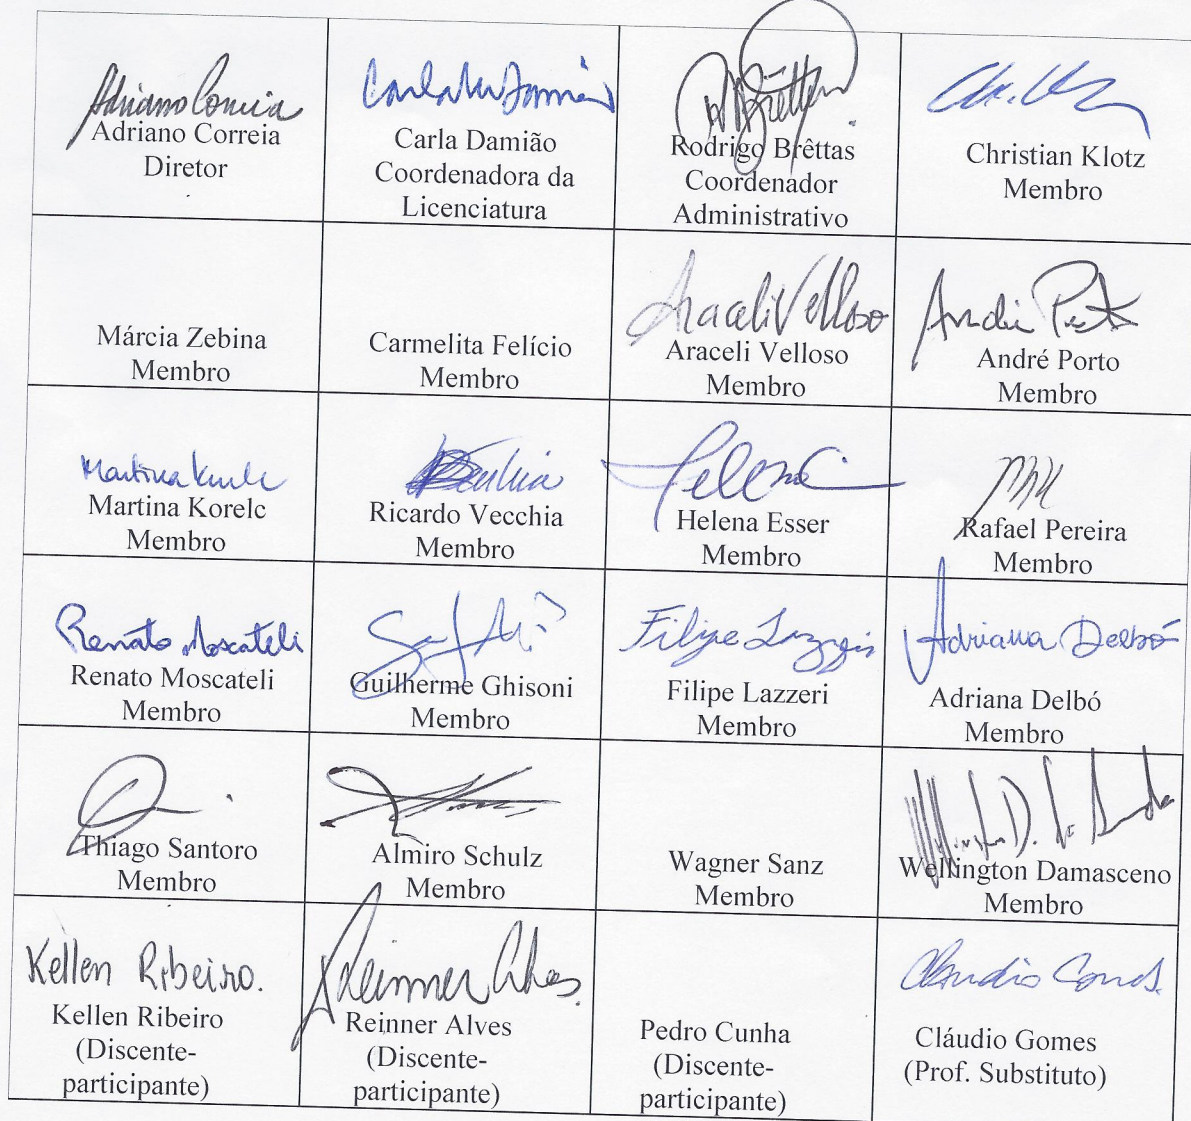 Adriano Correia
Adriano Correia
Diretor
Carla Damião
Carla Damião
Coordenadora da
Licenciatura
Brêttas
Rodrigo Brêttas
Coordenador
Administrativo
Christian Klotz
Membro
Márcia Zebina
Membro
Carmelita Felício
Membro
Araceli Velloso
Araceli Velloso
Membro
André Porto
André Porto
Membro
Martina Korelc
Martina Korelc
Membro
Ricardo Vecchia
Membro
Helena
Helena Esser
Membro
Rafael Pereira
Membro
Renato Moscateli
Renato Moscateli
Membro
Guilherme Ghisoni
Membro
Filipe Lazzeri
Filipe Lazzeri
Membro
Adriana Delbó
Adriana Delbó
Membro
Thiago Santoro
Membro
Almiro Schulz
Membro
Wagner Sanz
Membro
Wellington Damasceno
Membro
Kellen Ribeiro.
Kellen Ribeiro
(Discente-
participante)
Reinner Alves.
Reinner Alves
(Discente-
participante)
Pedro Cunha
(Discente-
participante)
Cláudio Gomes
Cláudio Gomes
(Prof. Substituto)